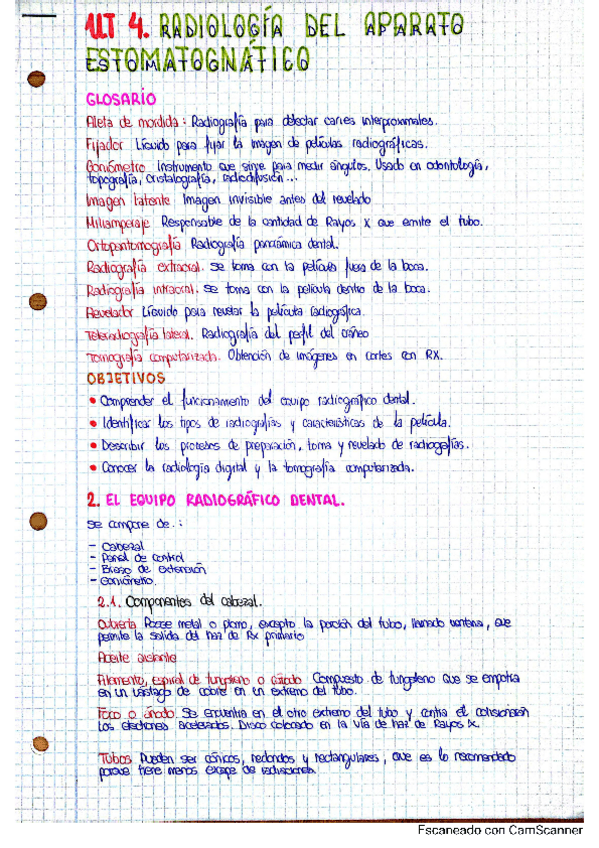 UT 4. RADIOLOGÍA DEL APARATO
ESTOMATOGNÁTICO
GLOSARIO
Aleta de mordida: Radiografía para detectar caries interproximales.
Fijador Líquido para fijar la imagen de películas radiográficas.
Goniómetro Instrumento que sirve para medir ángulos. Usado en odontología,
topografía, cristalografía, radiodifusión...
Imagen latente Imagen invisible antes del revelado
Miliamperaje Responsable de la cantidad de Rayos X que emite el tubo.
Ortopantomografía Radiografía panorámica dental.
Radiografía extraoral. Se toma con la película fuera de la boca.
Radiografía intraoral. Se toma con la película dentro de la boca.
Revelador Líquido para revelar la película radiográfica.
Telerradiografía lateral. Radiografía del perfil del cráneo
Tomografía computarizada. Obtención de imágenes en cortes con RX.
OBJETIVOS
• Comprender el funcionamiento del equipo radiográfico dental.
• Identificar los tipos de radiografías y características de la película.
• Describir los procesos de preparación, toma y revelado de radiografías.
• Conocer la radiología digital y la tomografía computarizada.
2. EL EQUIPO RADIOGRÁFICO DENTAL.
Se compone de.:
- Cabezal
- Panel de control
- Brazo de extensión
- Goniómetro.
2.1. Componentes del cabezal.
Cubierta Posee metal o plomo, excepto la porción del tubo, llamado ventana, que
permite la salida del haz de Rx primario
Aceite aislante
Filamento, espiral de tungsteno o cátodo Compuesto de tungsteno que se empotra
en un vástago de cobre en un extremo del tubo.
Foco o ánodo. Se encuentra en el otro extremo del tubo y contra él colisionarán
los electrones acelerados. Disco colocado en la vía de haz de Rayos X.
Tubos Pueden ser cónicos, redondos y rectangulares, que es lo recomendado
porque tiene menos escape de radiaciones.
Escaneado con CamScanner